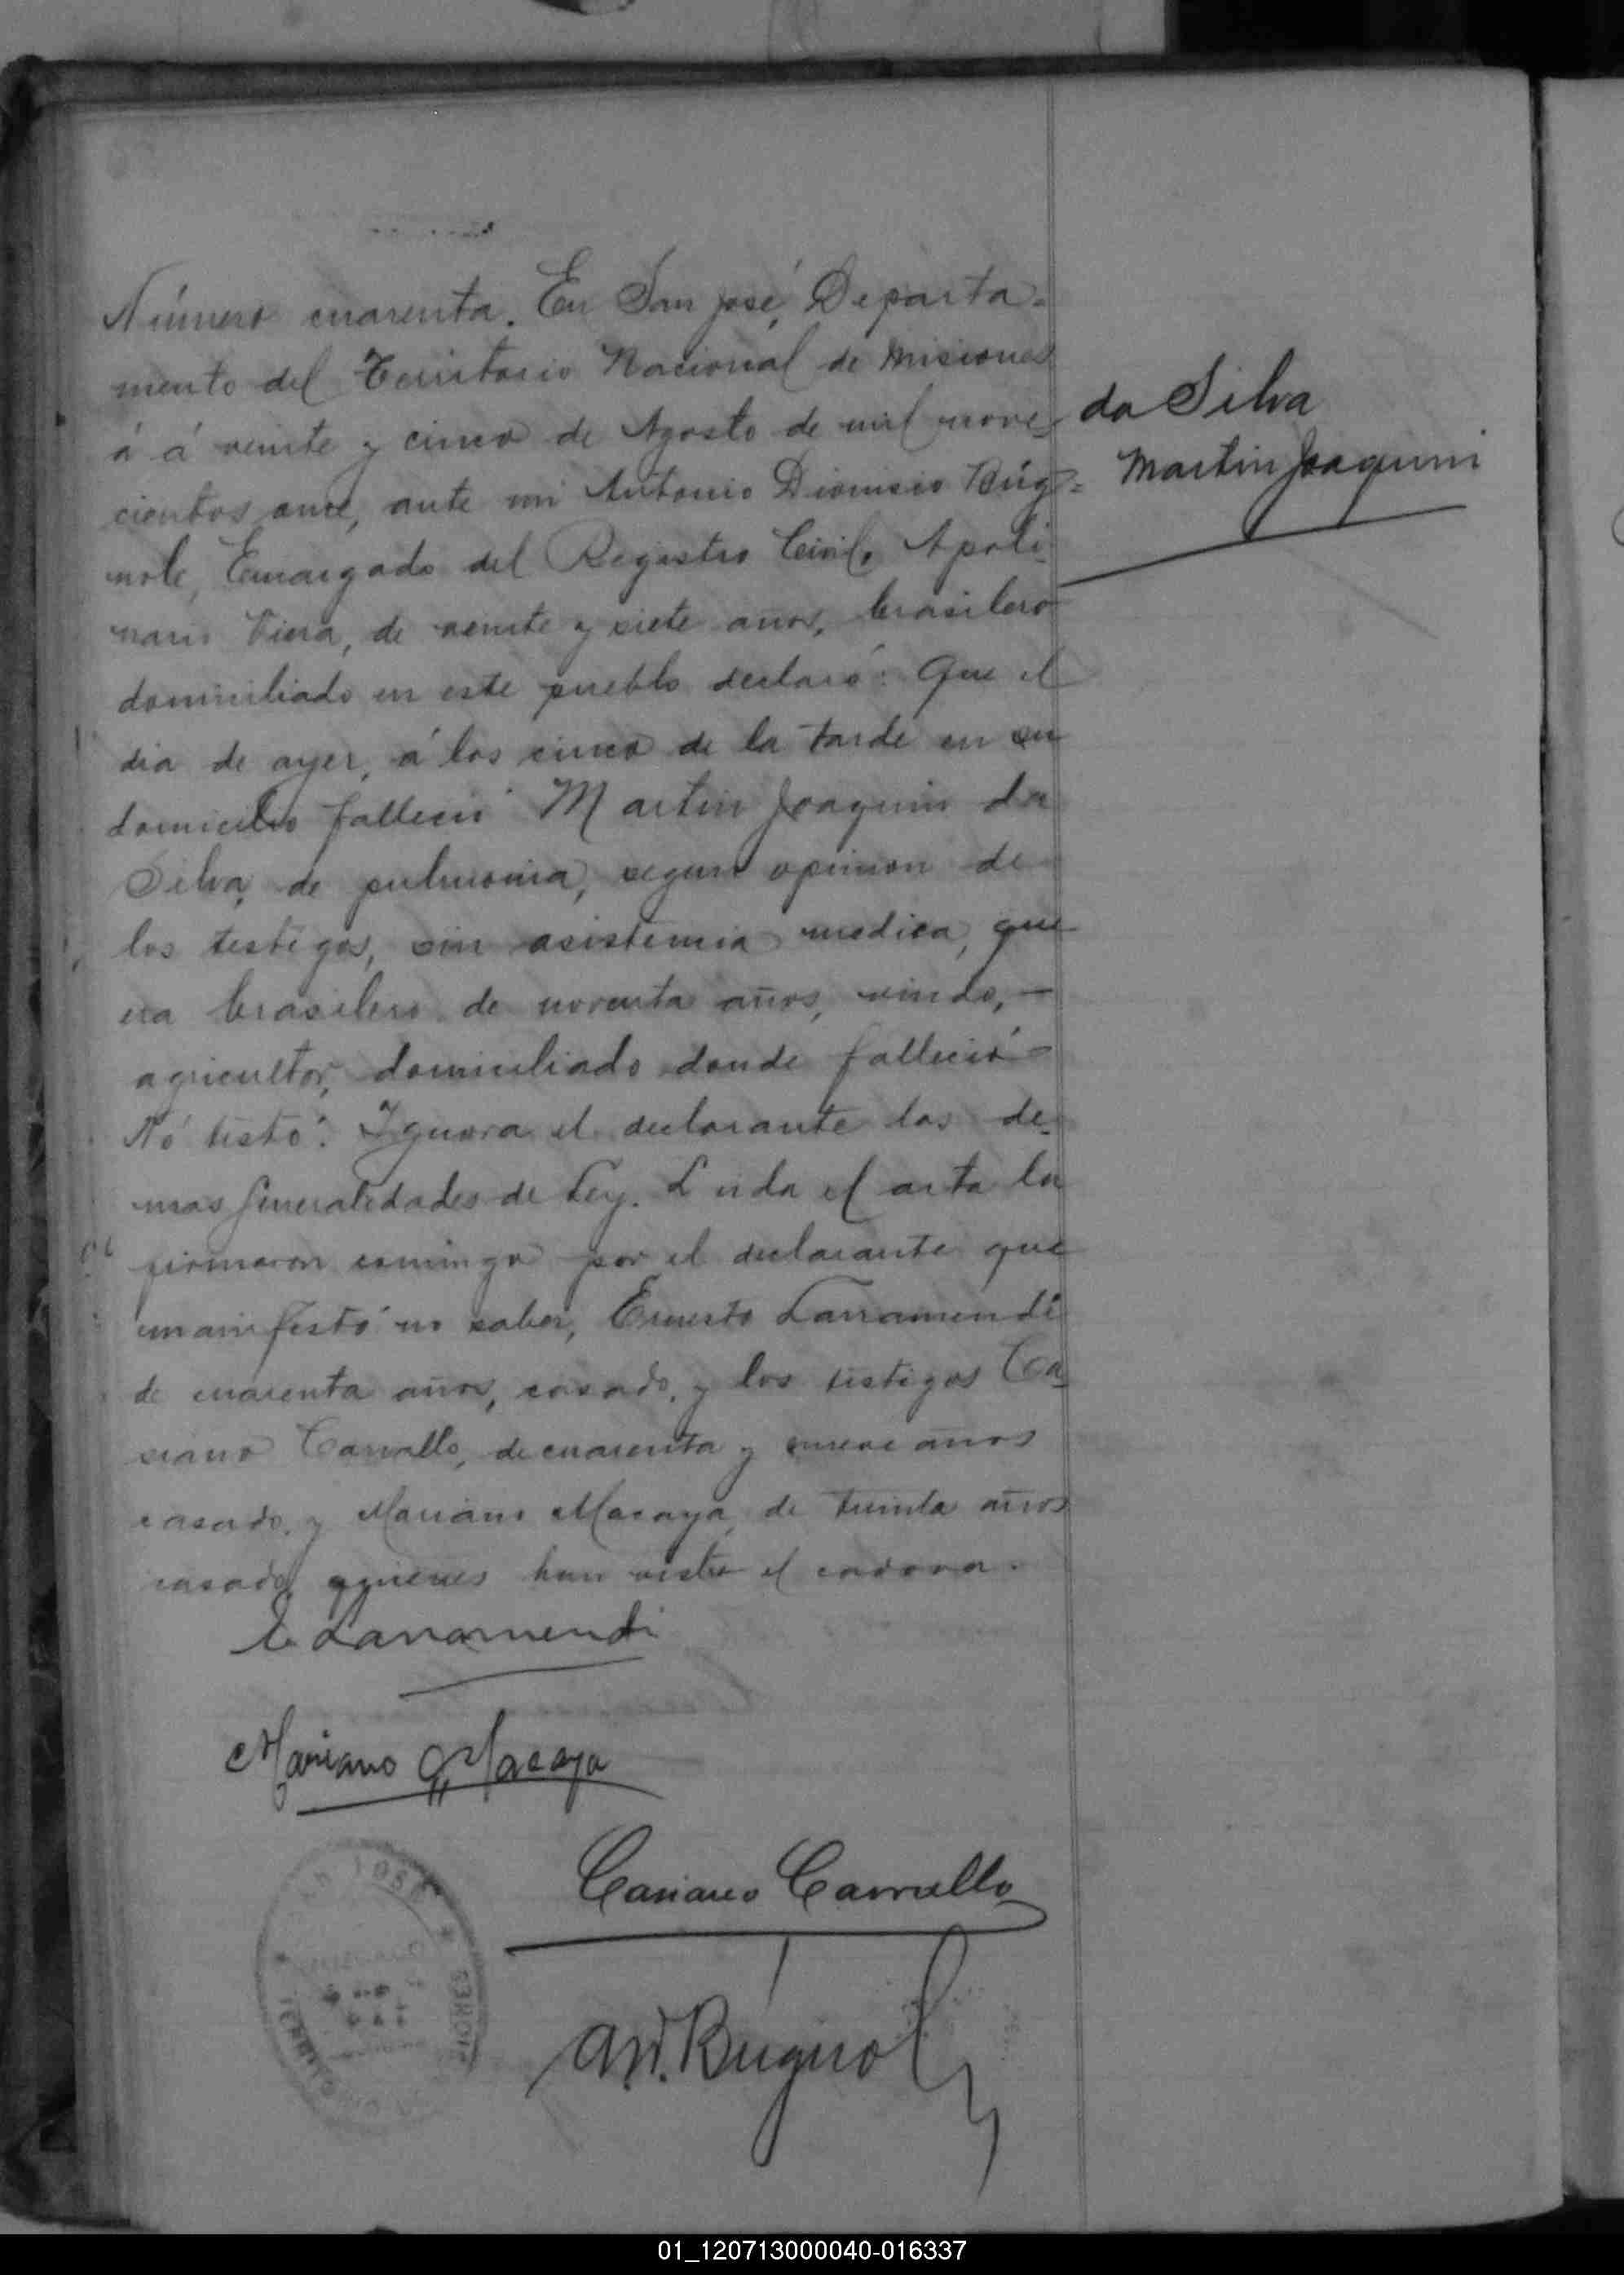 Número cuarenta. En San José, Departa-
mento del Territorio Nacional de Misiones
á á veinte y cinco de Agosto de mil nove-
cientos once, ante mi Antonio Dionisio Búg-
nole, Encargado del Registro Civil, Apoli-
naris Viera, de veinte y siete años, brasilero
domiciliado en este pueblo declaró: Que el
dia de ayer, á las cinco de la tarde en su
domicilio falleció Martin Joaquin da
Silva, de pulmonia, segun opinion de
los testigos, sin asistencia medica, que
era brasilero de noventa años, viudo, —
agricultor, domiciliado donde falleció-
Nó testó. Ignora el declarante las de-
mas generalidades de Ley. Leida el acta la
firmaron conmigo por el declarante que
manifestó no saber, Ernesto Larramendi
de cuarenta años, casado, y los testigos Ca-
siano Carvallo, de cuarenta y nueve años
casado, y Mariano Macaya, de treinta años
casado, quienes han visto el cadaver.
E Larramendi
Mariano Macaya
Casiano Carvallo
A.D. Bugnol
da Silva
Martin Joaquin
SAN JOSÉ
MISIONES
TERRITORIO
01_120713000040-016337